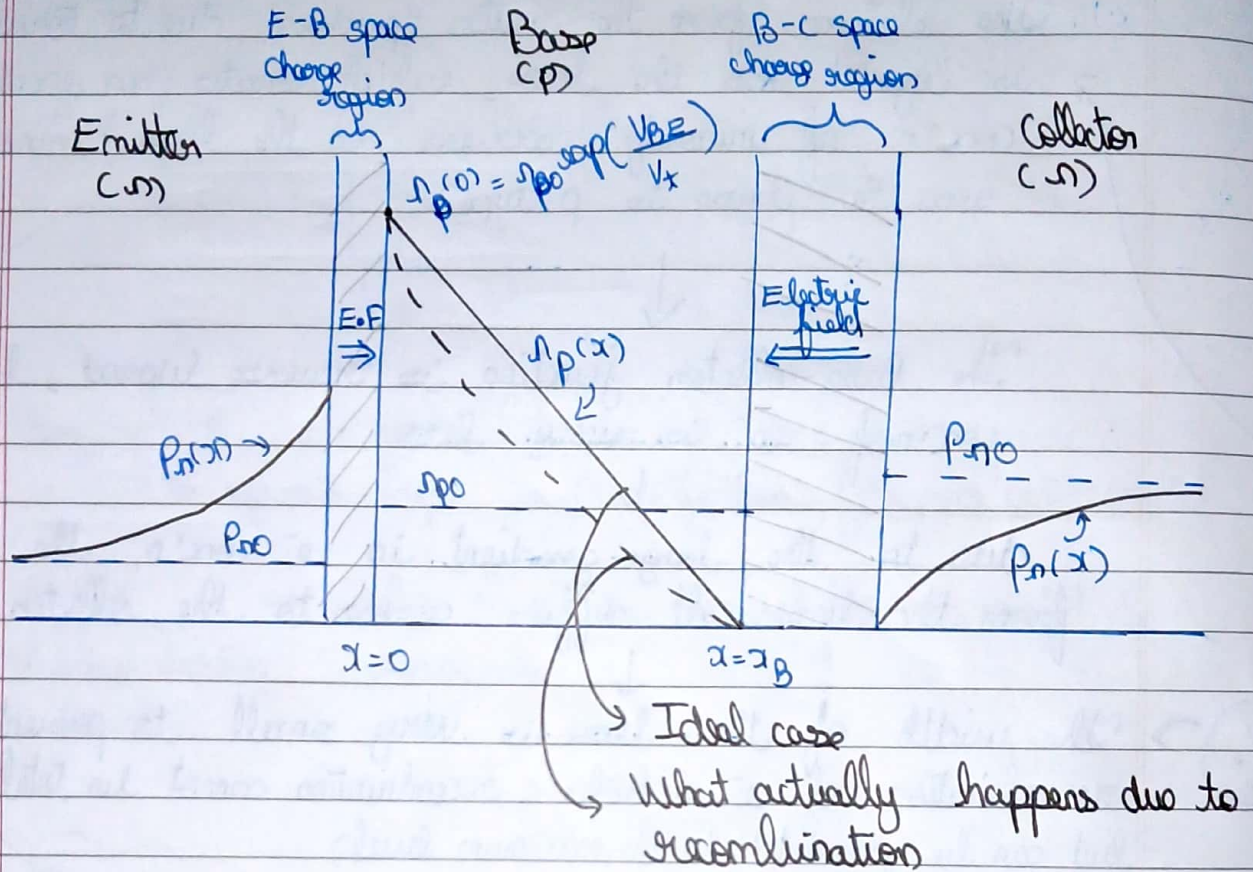 E-B space
charge
region
Base
(p)
B-C space
charge region
Emitter
(n)
n_p(0) = n_p0 exp(V_BE/V_t)
Collector
(n)
E.F
Electric
field
n_p(x)
P_n(x)
n_p0
P_n0
P_n0
P_n(x)
x=0
x=x_B
Ideal case
What actually happens due to
recombination